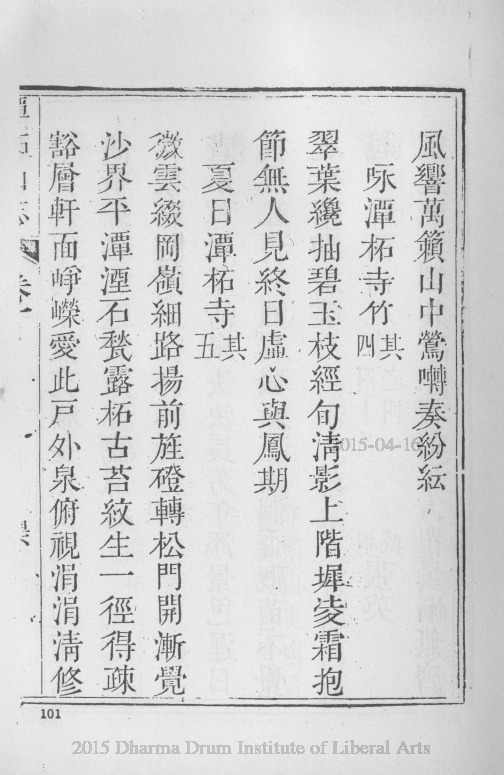 風響萬籟山中鶯囀奏紛紜
咏潭柘寺竹其四
翠葉纔抽碧玉枝經旬淸影上階墀凌霜抱
節無人見終日虛心與鳳期
夏日潭柘寺其五
微雲綴岡嶺細路揚前旌磴轉松門開漸覺
沙界平潭湮石甃露柘古苔紋生一徑得疎
豁層軒面崢嶸愛此戸外泉俯視涓涓淸修
山志 卷一
101
2015-04-16
2015 Dharma Drum Institute of Liberal Arts